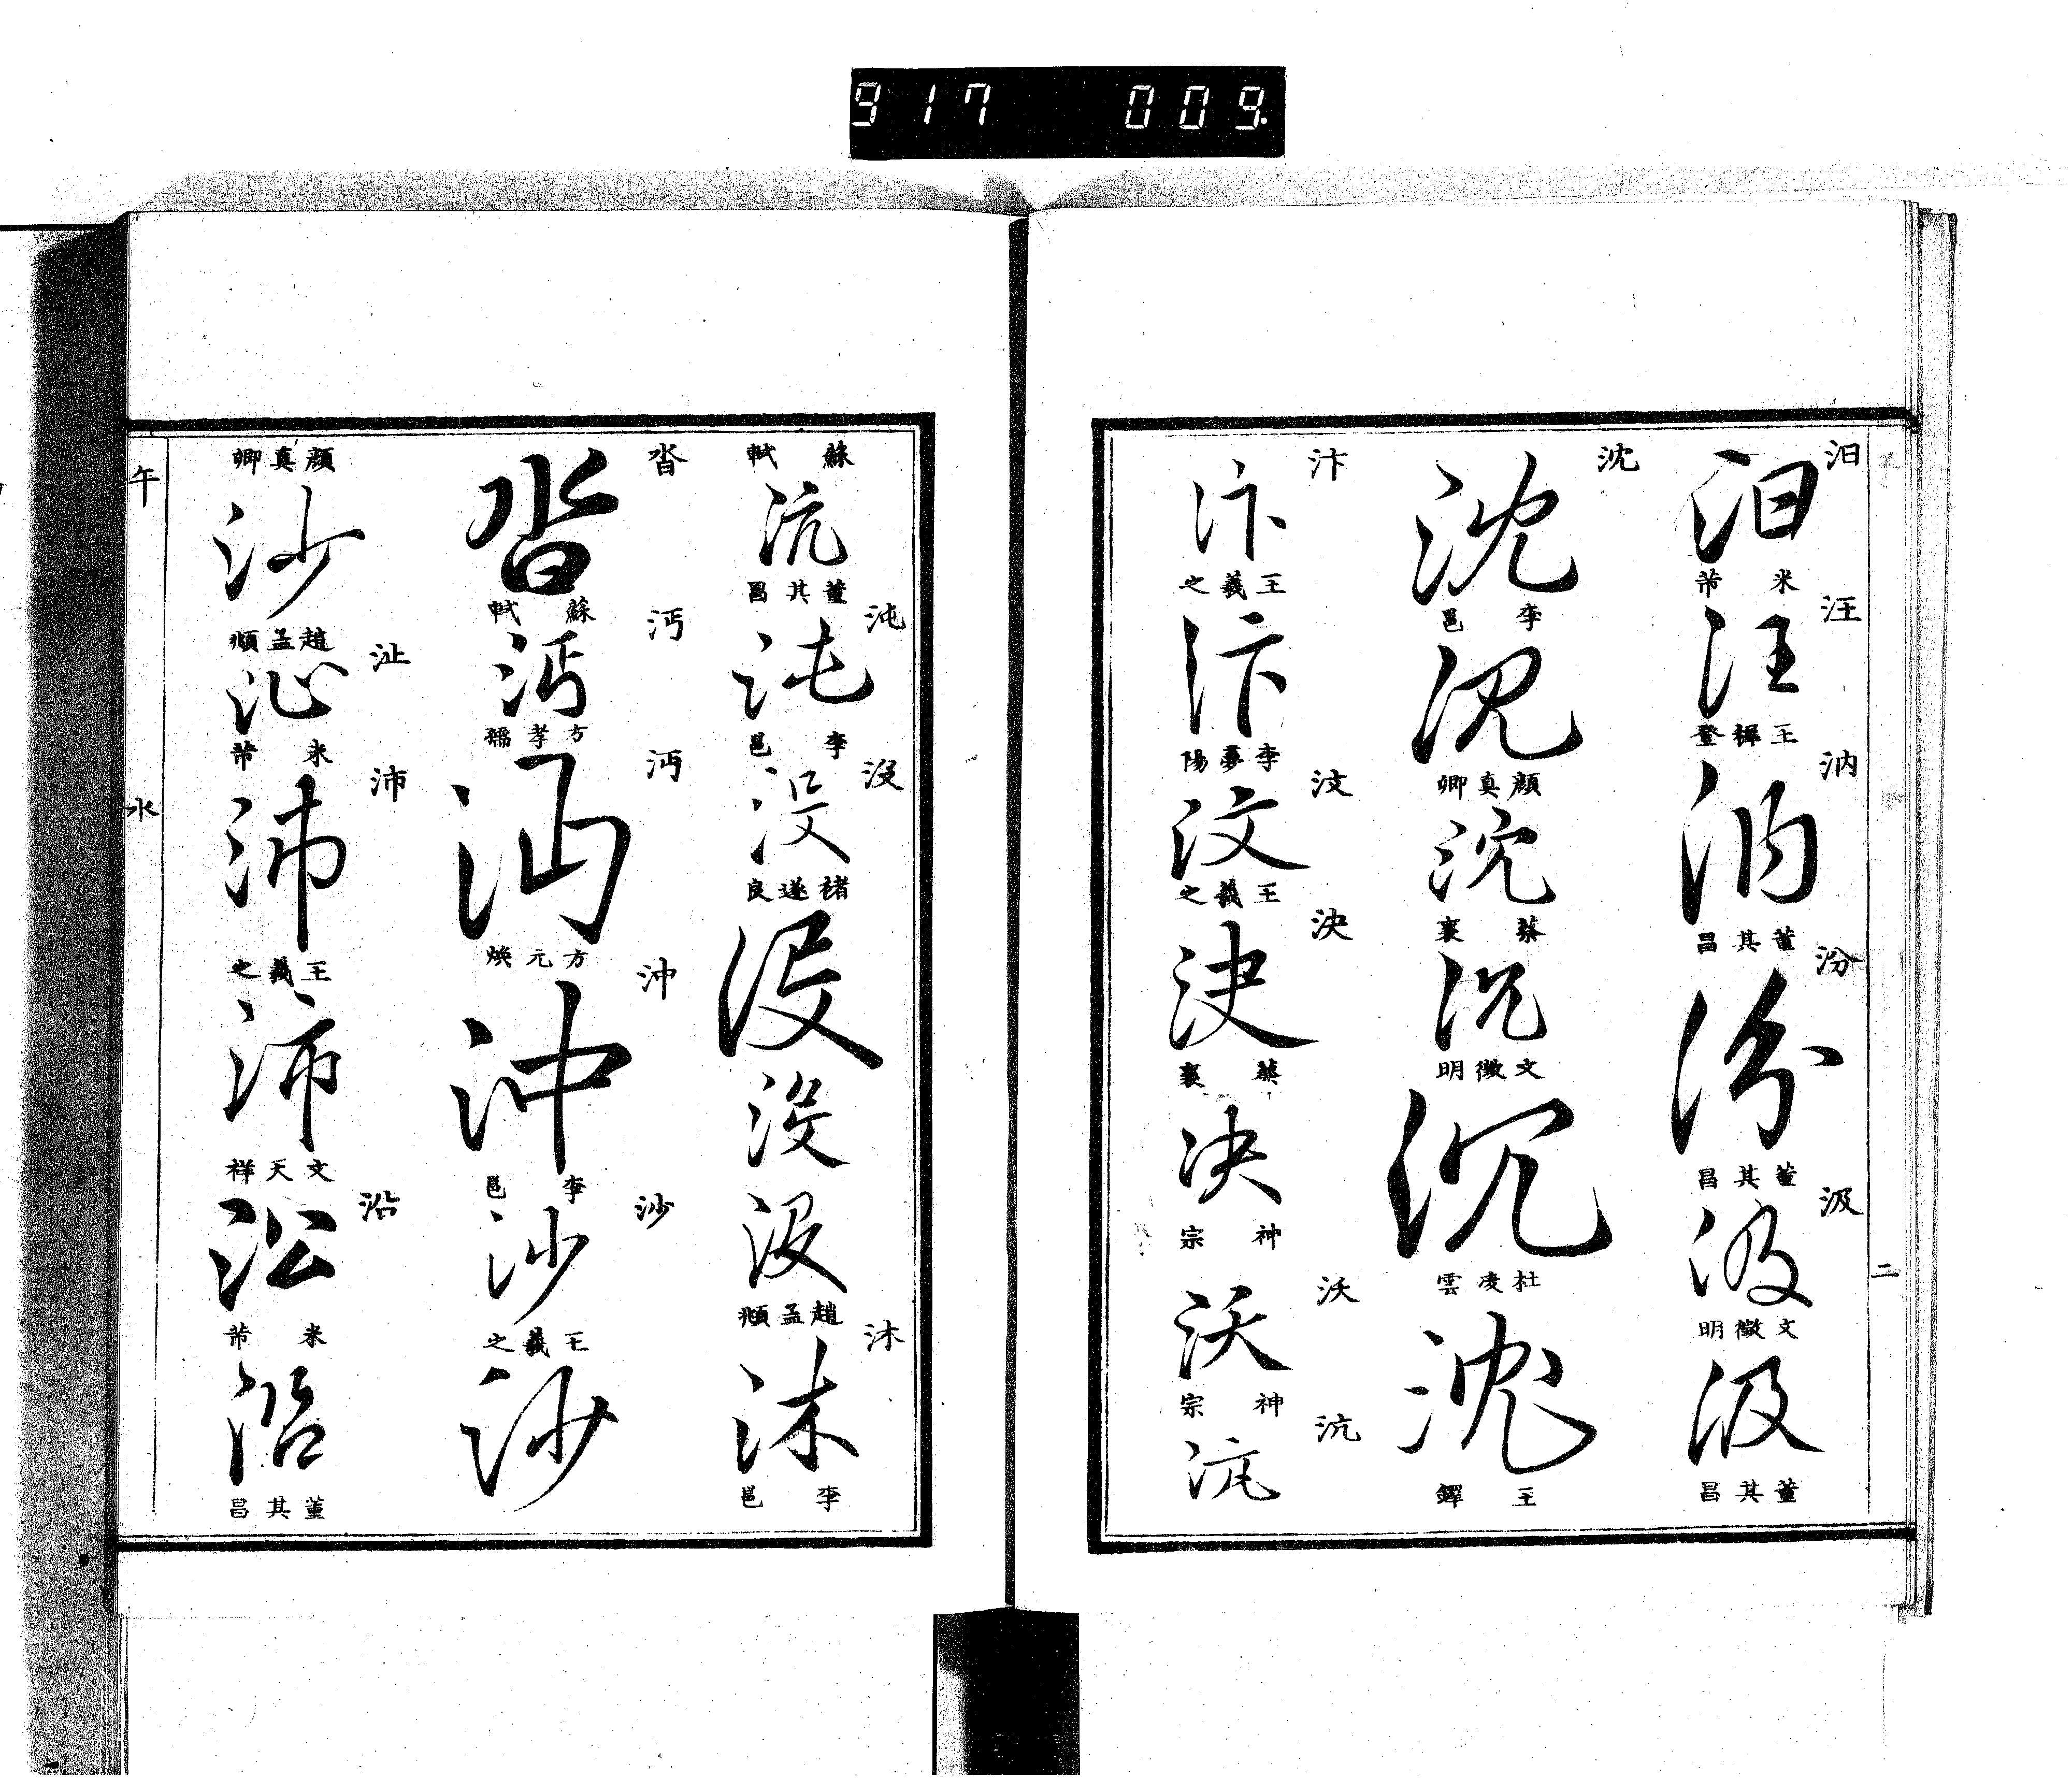 917 009
二
汨
汨
米芾
汪
汪
王穉登
汭
汭
董其昌
汾
汾
董其昌
汲
汲
文徵明
汲
董其昌
沈
沈
李邕
沈
顔真卿
沈
蔡襄
沈
文徵明
沈
杜凌雲
沈
王鐸
汴
汴
王羲之
汴
李夢陽
汶
汶
王羲之
決
決
蔡襄
決
神宗
沃
沃
神宗
沆
沆
蘇軾
沆
董其昌
沌
沌
李邕
沒
沒
褚遂良
沒
沒
沒
趙孟頫
沐
沐
李邕
沓
沓
蘇軾
沔
沔
方孝孺
沔
沔
方元煥
沖
沖
李邕
沙
沙
王羲之
沙
顔真卿
沙
趙孟頫
沚
沚
米芾
沛
沛
王羲之
沛
文天祥
沿
沿
米芾
沿
董其昌
午
水